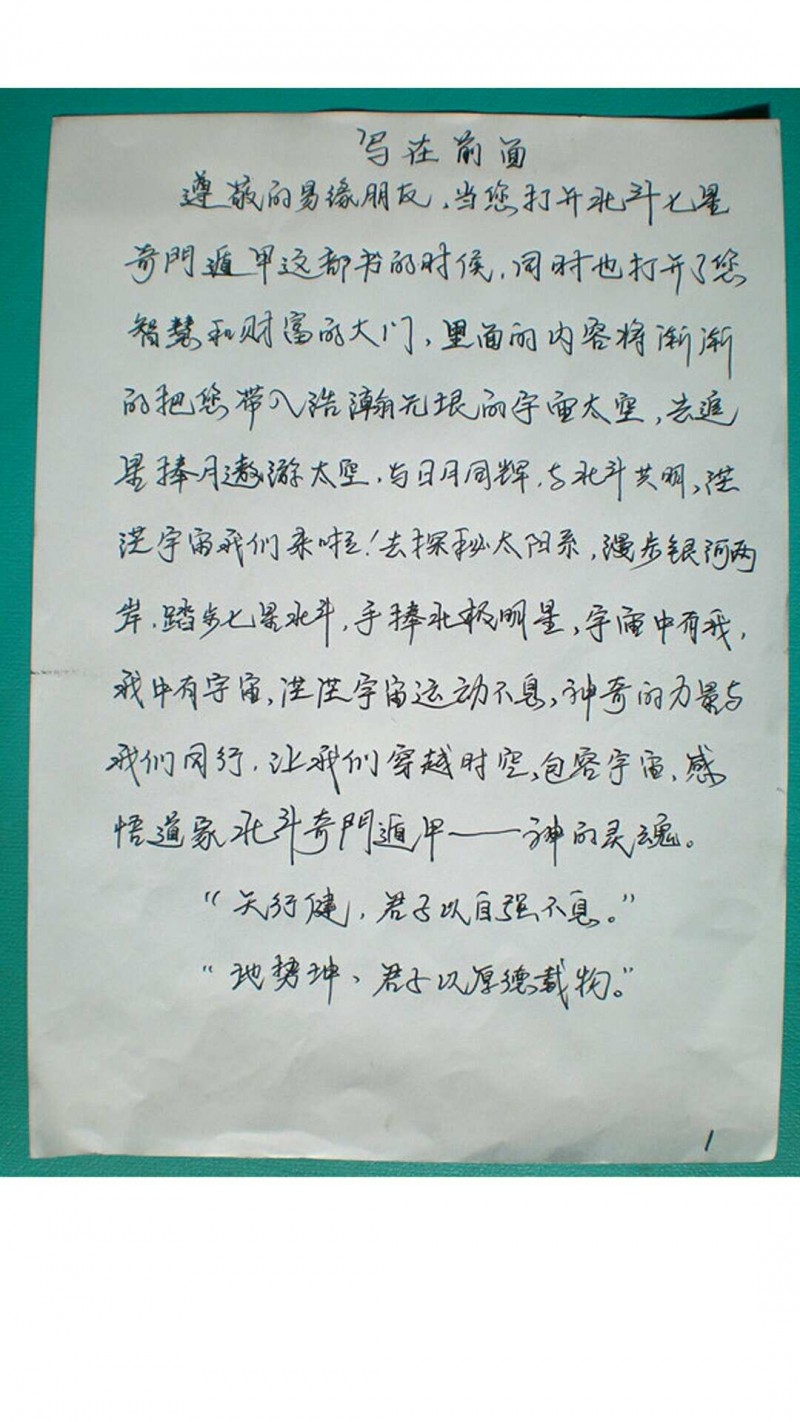 写在前面
遵敬的易缘朋友,当您打开北斗七星
奇門遁甲这部书的时侯,同时也打开了您
智慧和财富的大门,里面的内容将渐渐
的把您带入浩瀚无垠的宇宙太空,去追
星捧月遨游太空,与日月同辉,与北斗共明,洪
洪宇宙我们来啦!去探秘太阳系,漫步银河两
岸,踏步七星北斗,手捧北极明星,宇宙中有我,
我中有宇宙,洪洪宇宙运动不息,神奇的力量与
我们同行,让我们穿越时空,包容宇宙,感
悟道家北斗奇門遁甲——神的灵魂。
“天行健,君子以自强不息。”
“地势坤、君子以厚德载物。”
1